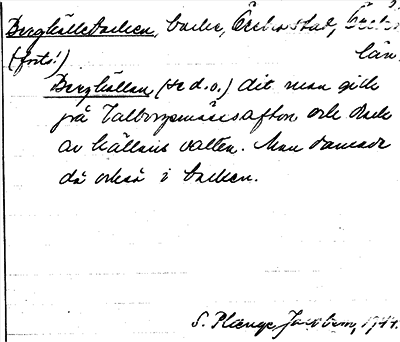 Berghällebacken, backe, Örebro stad, Örebro
län
(forts.)
Berghällan (se d.o.) dit man gick
på Valborgsmässafton och drack
av källans vatten. Man dansade
då också i backen.
S. Plænge Jacobson, 1944.